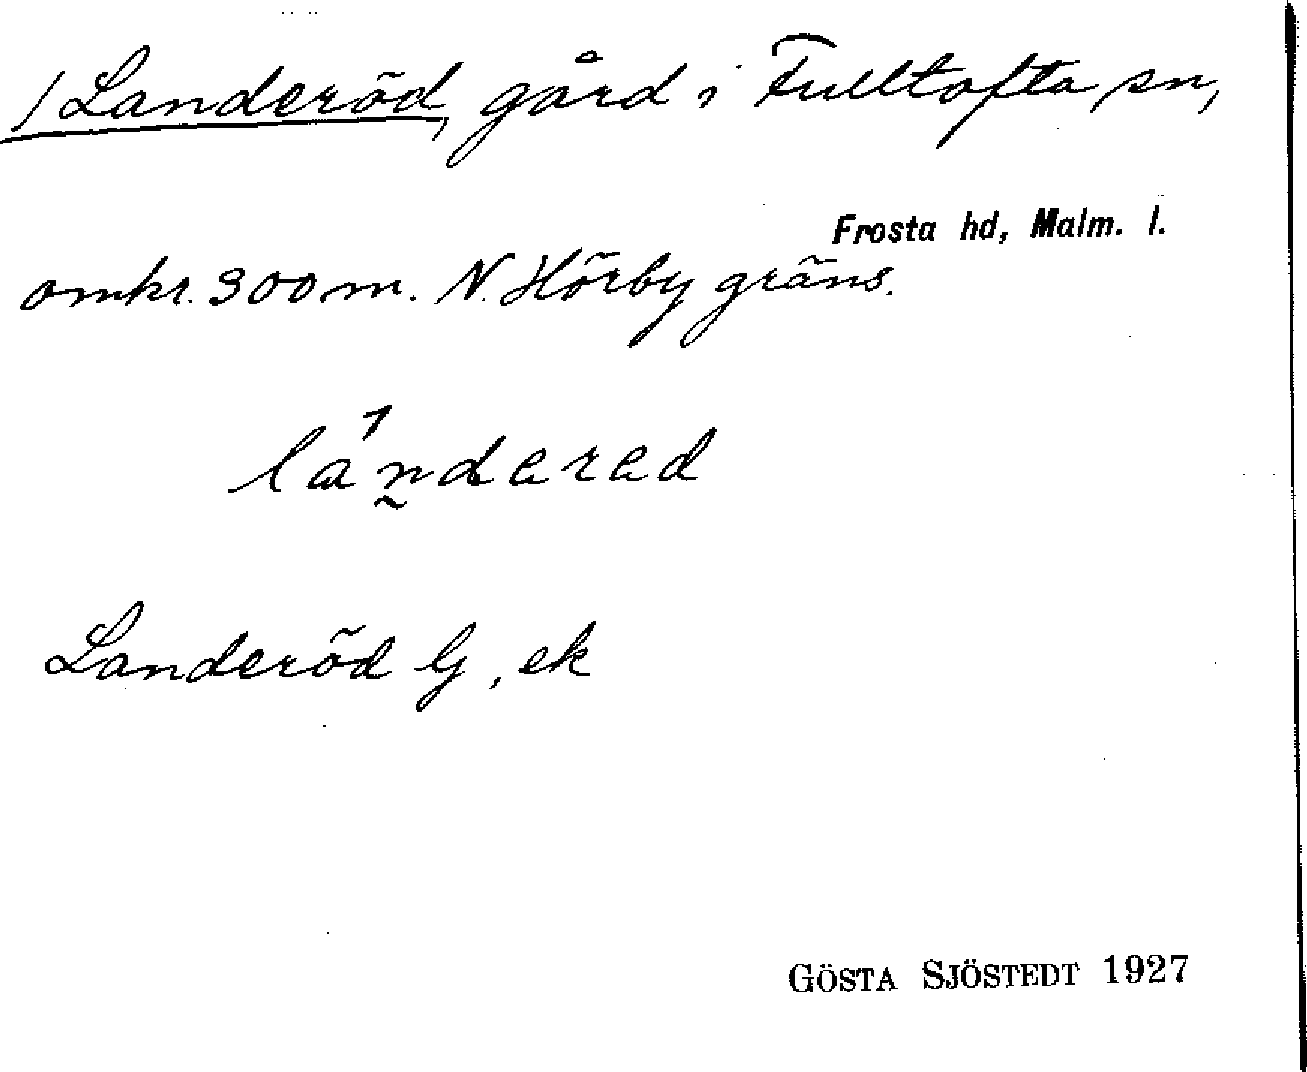 / Landeröd, gård i Fulltofta sn,
Frosta hd, Malm. l.
omkr. 300 m. N. Hörby gräns.
landered
Landeröd G, ek
GÖSTA SJÖSTEDT 1927